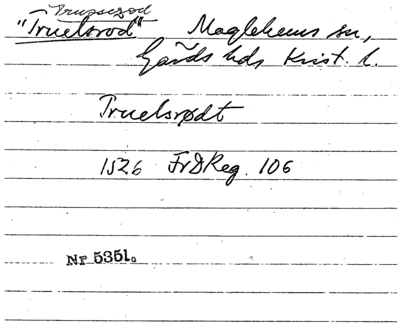 "Truelsrod" Maglehems sn,
Gärds hds Krist. l.
Truelsrødt
1526 FrDReg. 106
Nr 5351.